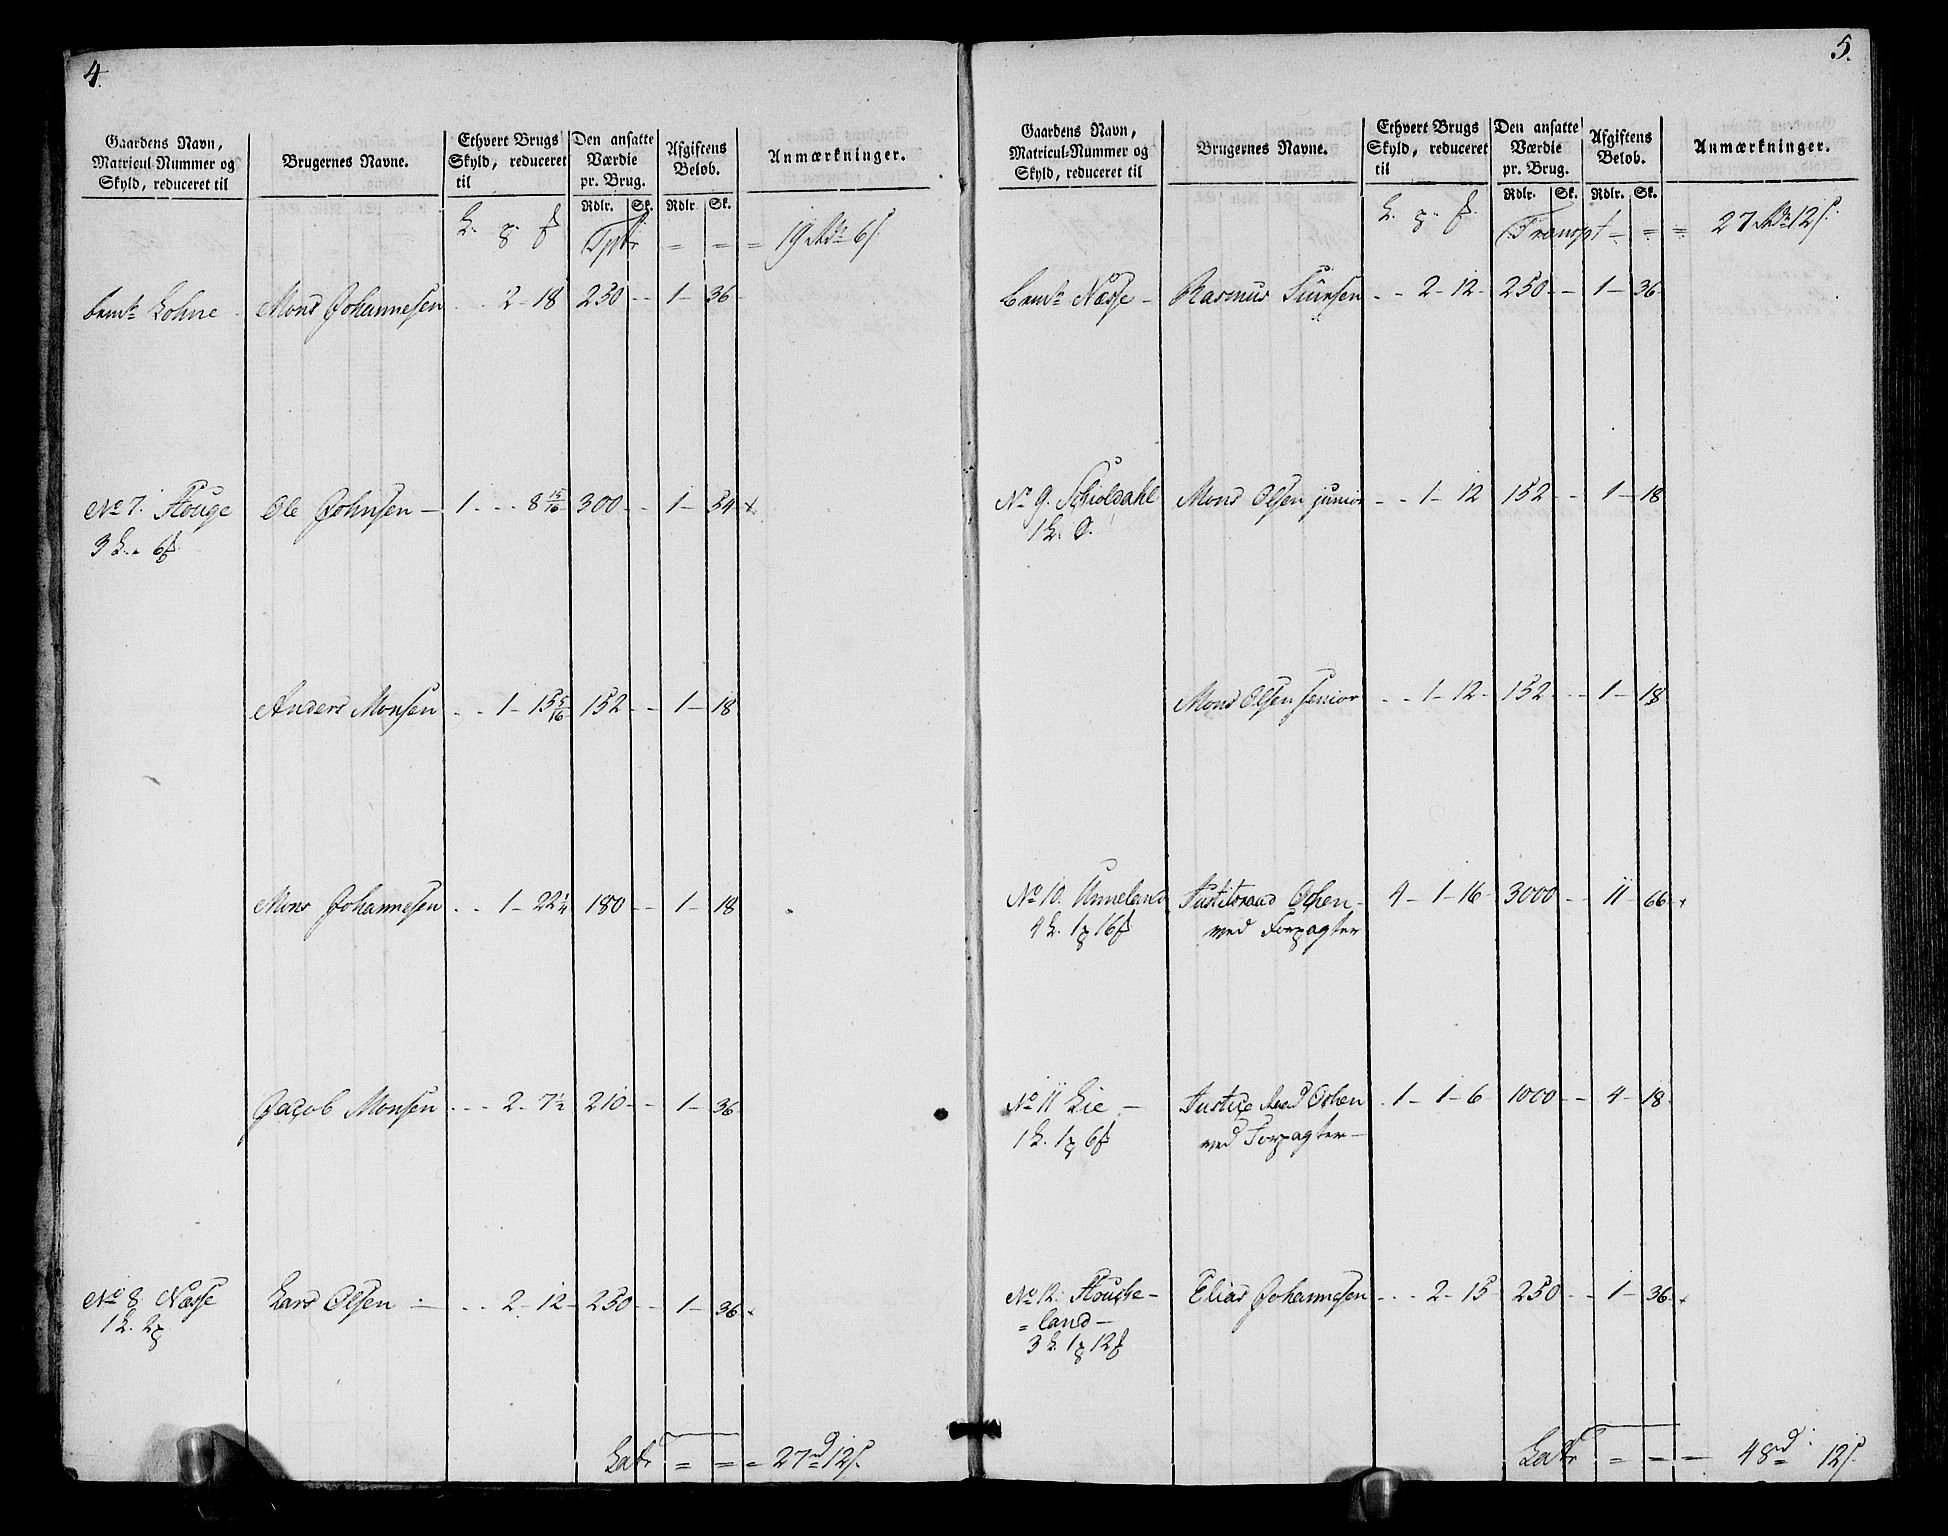 4.
Gaardens Navn, Matricul-Nummer og Skyld, reduceret til | Brugernes Navne. | Ethvert Brugs Skyld, reduceret til | Den ansatte Værdie pr. Brug. | Afgiftens Beløb. | Anmærkninger.
Rdlr. Sk. Rdlr. Sk.
19 6
Lohne Mons Johannesen 2 - 18 250 1 - 36
No 7. Houge Ole Johnsen 1 8 15/16 300 1 - 54
3 6
Anders Monsen 1 - 15 5/16 152 1 - 18
Mons Johannesen 1 - 22 1/4 180 1 - 18
Jacob Monsen 2 - 7 1/2 210 1 - 36
No 8. Næsse Lars Olsen 2 - 12 250 1 - 36
1 2
Latr 27 12
5.
Gaardens Navn, Matricul-Nummer og Skyld, reduceret til | Brugernes Navne. | Ethvert Brugs Skyld, reduceret til | Den ansatte Værdie pr. Brug. | Afgiftens Beløb. | Anmærkninger.
Rdlr. Sk. Rdlr. Sk.
Transpt 27 12
Næsse Rasmus 2 - 12 250 1 - 36
No 9. Schioldahl Mons Olsen junior 1 - 12 152 1 - 18
Mons Olsen senior 1 - 12 152 1 - 18
No 10. Unneland Justitsraad 4 - 1 - 16 3000 11 66
4 1 16 med Forpagter
No 11 Lie Justice Raad 1 - 1 - 6 1000 4 - 18
1 1 6 med Forpagter
No 12. Elias Johannesen 2 - 15 250 1 - 36
land
3 1 12
Latr 48 12